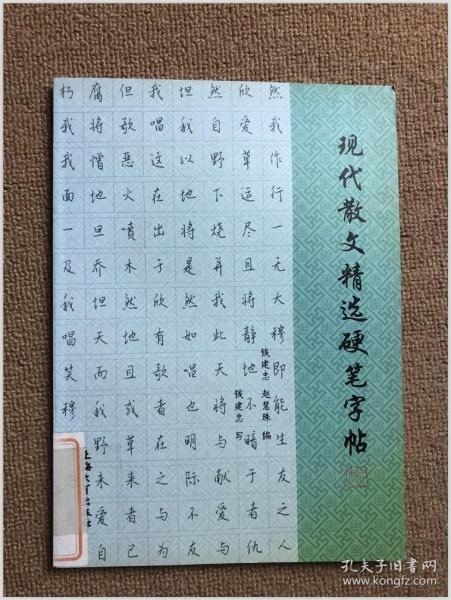 现代散文精选硬笔字帖
钱建忠 赵慧珠 编
钱建忠 写
朽腐但我坦然欣然
我将歌唱我自爱我
我憎恶这以野草作
面地火在地下运行
一旦喷出将烧尽一
及乔木于是并且无
我坦然欣然我将大
唱天地有如此静穆
笑而且歌唱天地即
穆我或者也将不能
野草在明与暗生
未来之际献于友
爱者与不爱者之
自己为友与仇人
上海大学出版社
孔夫子旧书网
www.kongfz.com